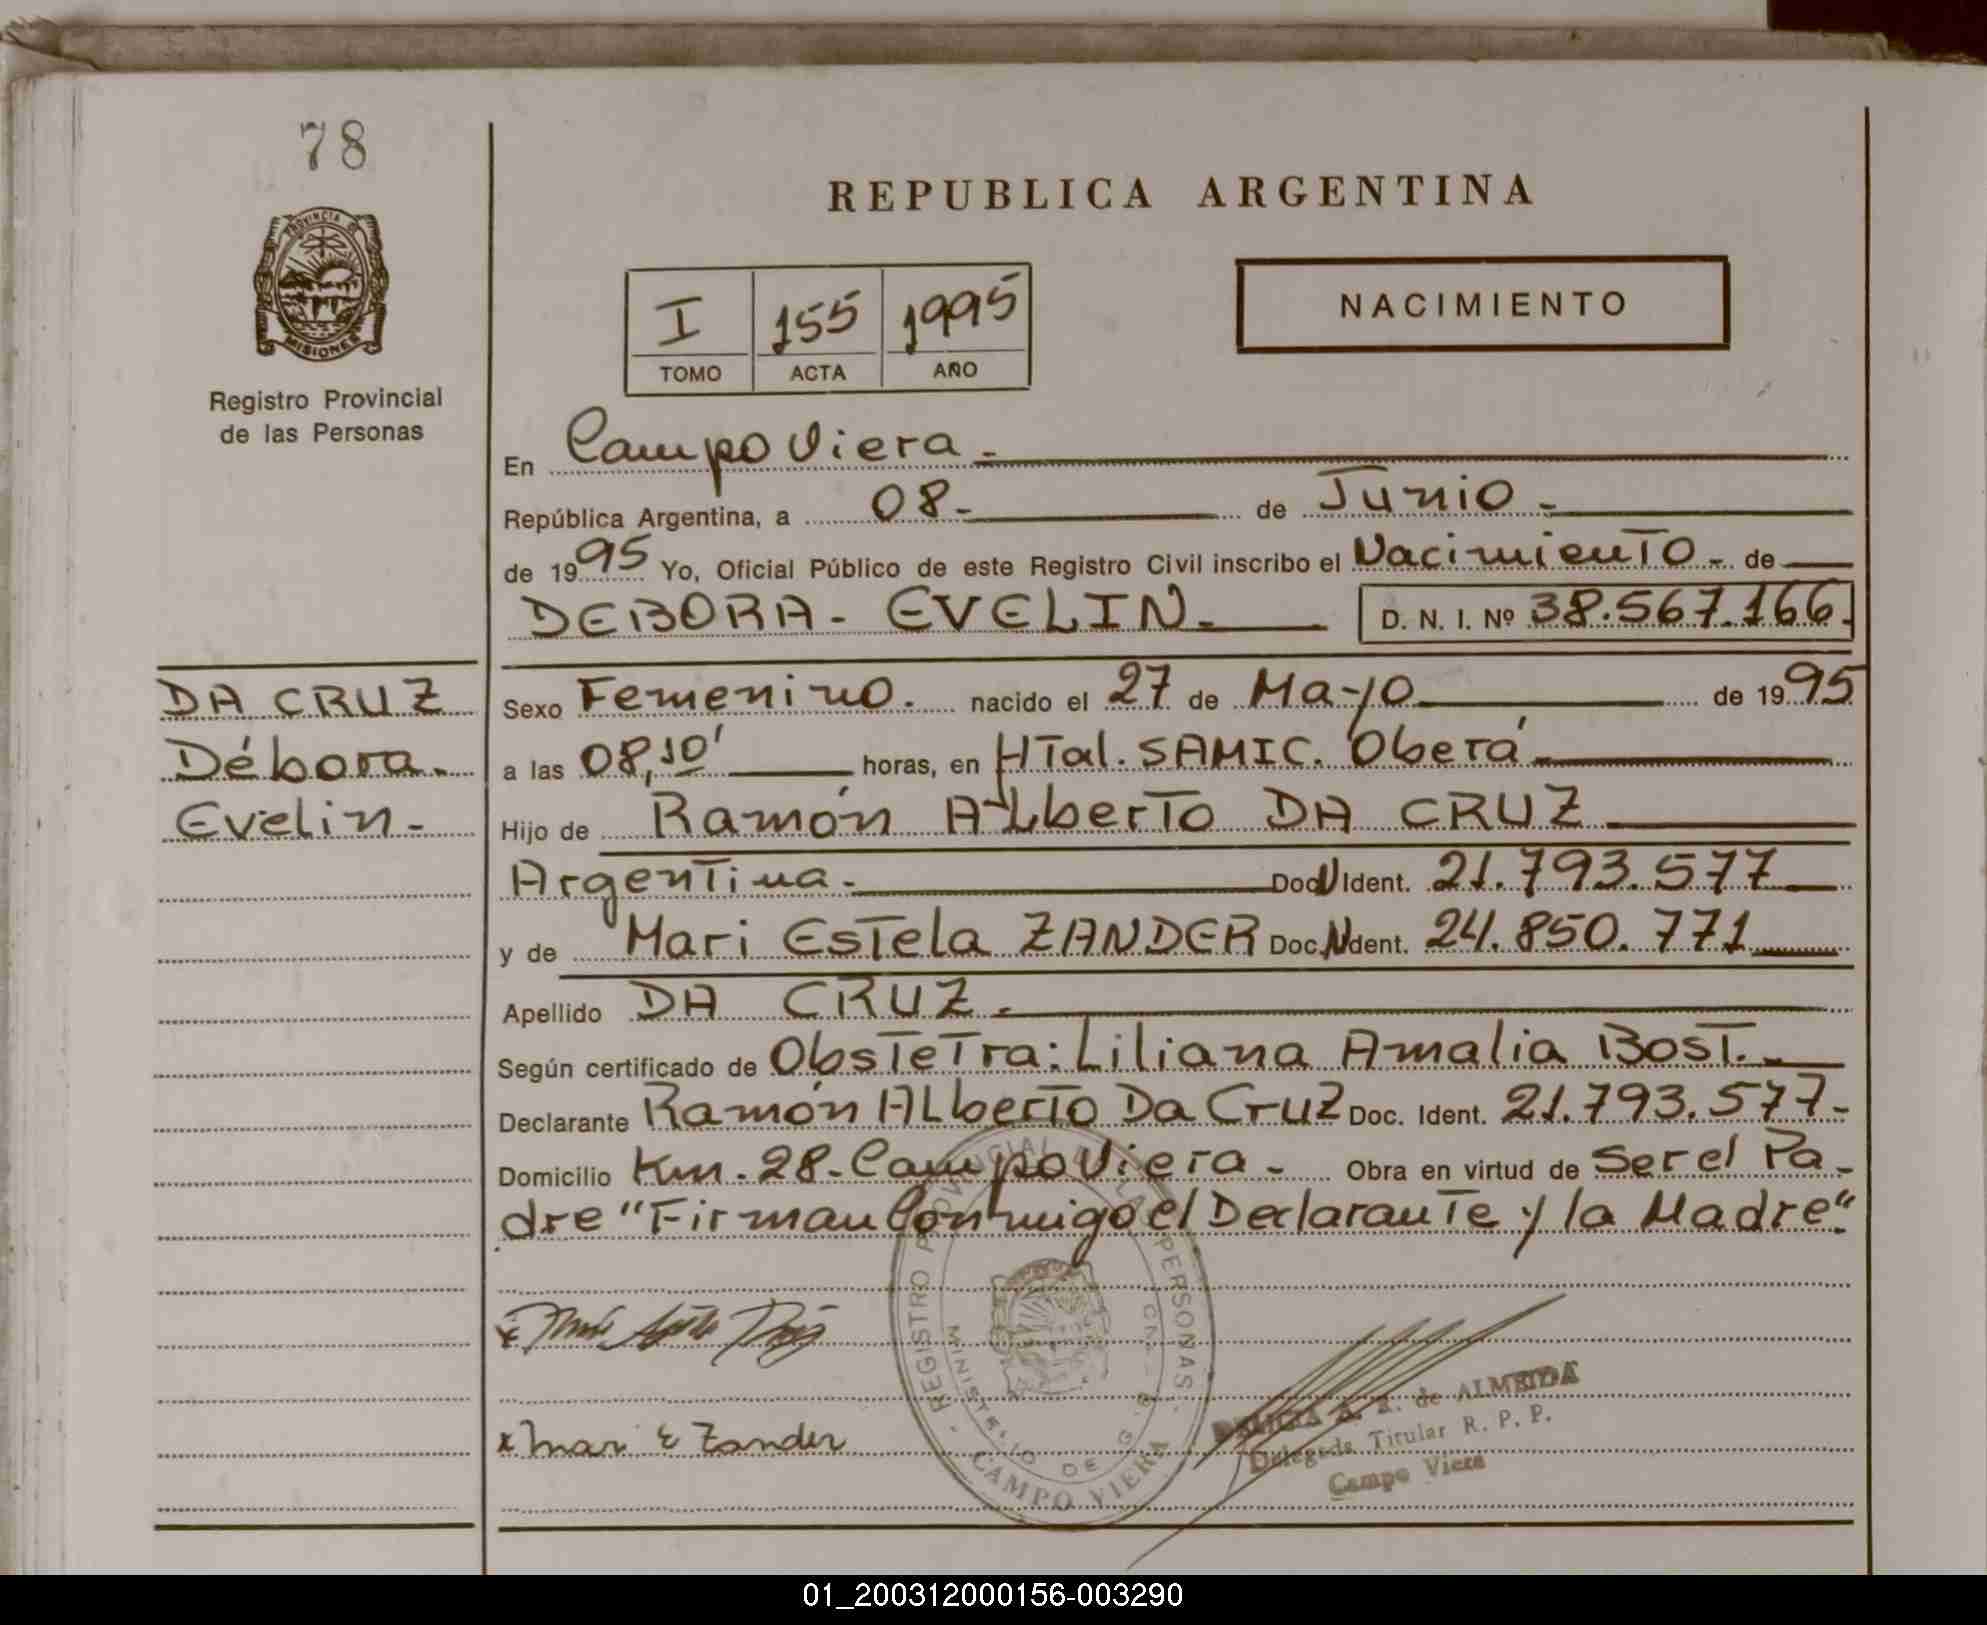 78
PROVINCIA DE
MISIONES
Registro Provincial
de las Personas
REPUBLICA ARGENTINA
I 155 1995
TOMO ACTA AÑO
NACIMIENTO
En Campo Viera.
República Argentina, a 08- de Junio.
de 1995 Yo, Oficial Público de este Registro Civil inscribo el Nacimiento. de
DEBORA- EVELIN. D. N. I. Nº 38.567.166.
DA CRUZ
Débora.
Evelin-
Sexo Femenino. nacido el 27 de Mayo de 1995
a las 08,10' horas, en HTal. SAMIC. Oberá
Hijo de Ramón ALberto DA CRUZ
Argentina. Doc N Ident. 21.793.577
y de Mari Estela ZANDER Doc. N dent. 24.850.771
Apellido DA CRUZ.
Según certificado de Obstetra: Liliana Amalia BosT.
Declarante Ramón ALberto Da Cruz Doc. Ident. 21.793.577-
Domicilio Km. 28- Campo Viera. Obra en virtud de Ser el Pa-
dre "Firman Conmigo el Declarante y la Madre".
REGISTRO PROVINCIAL DE LAS PERSONAS
MINISTERIO DE G.
CAMPO VIERA
x Mari E Zander
DELICIA A. A. de ALMEIDA
Delegada Titular R. P. P.
Campo Viera
01_200312000156-003290